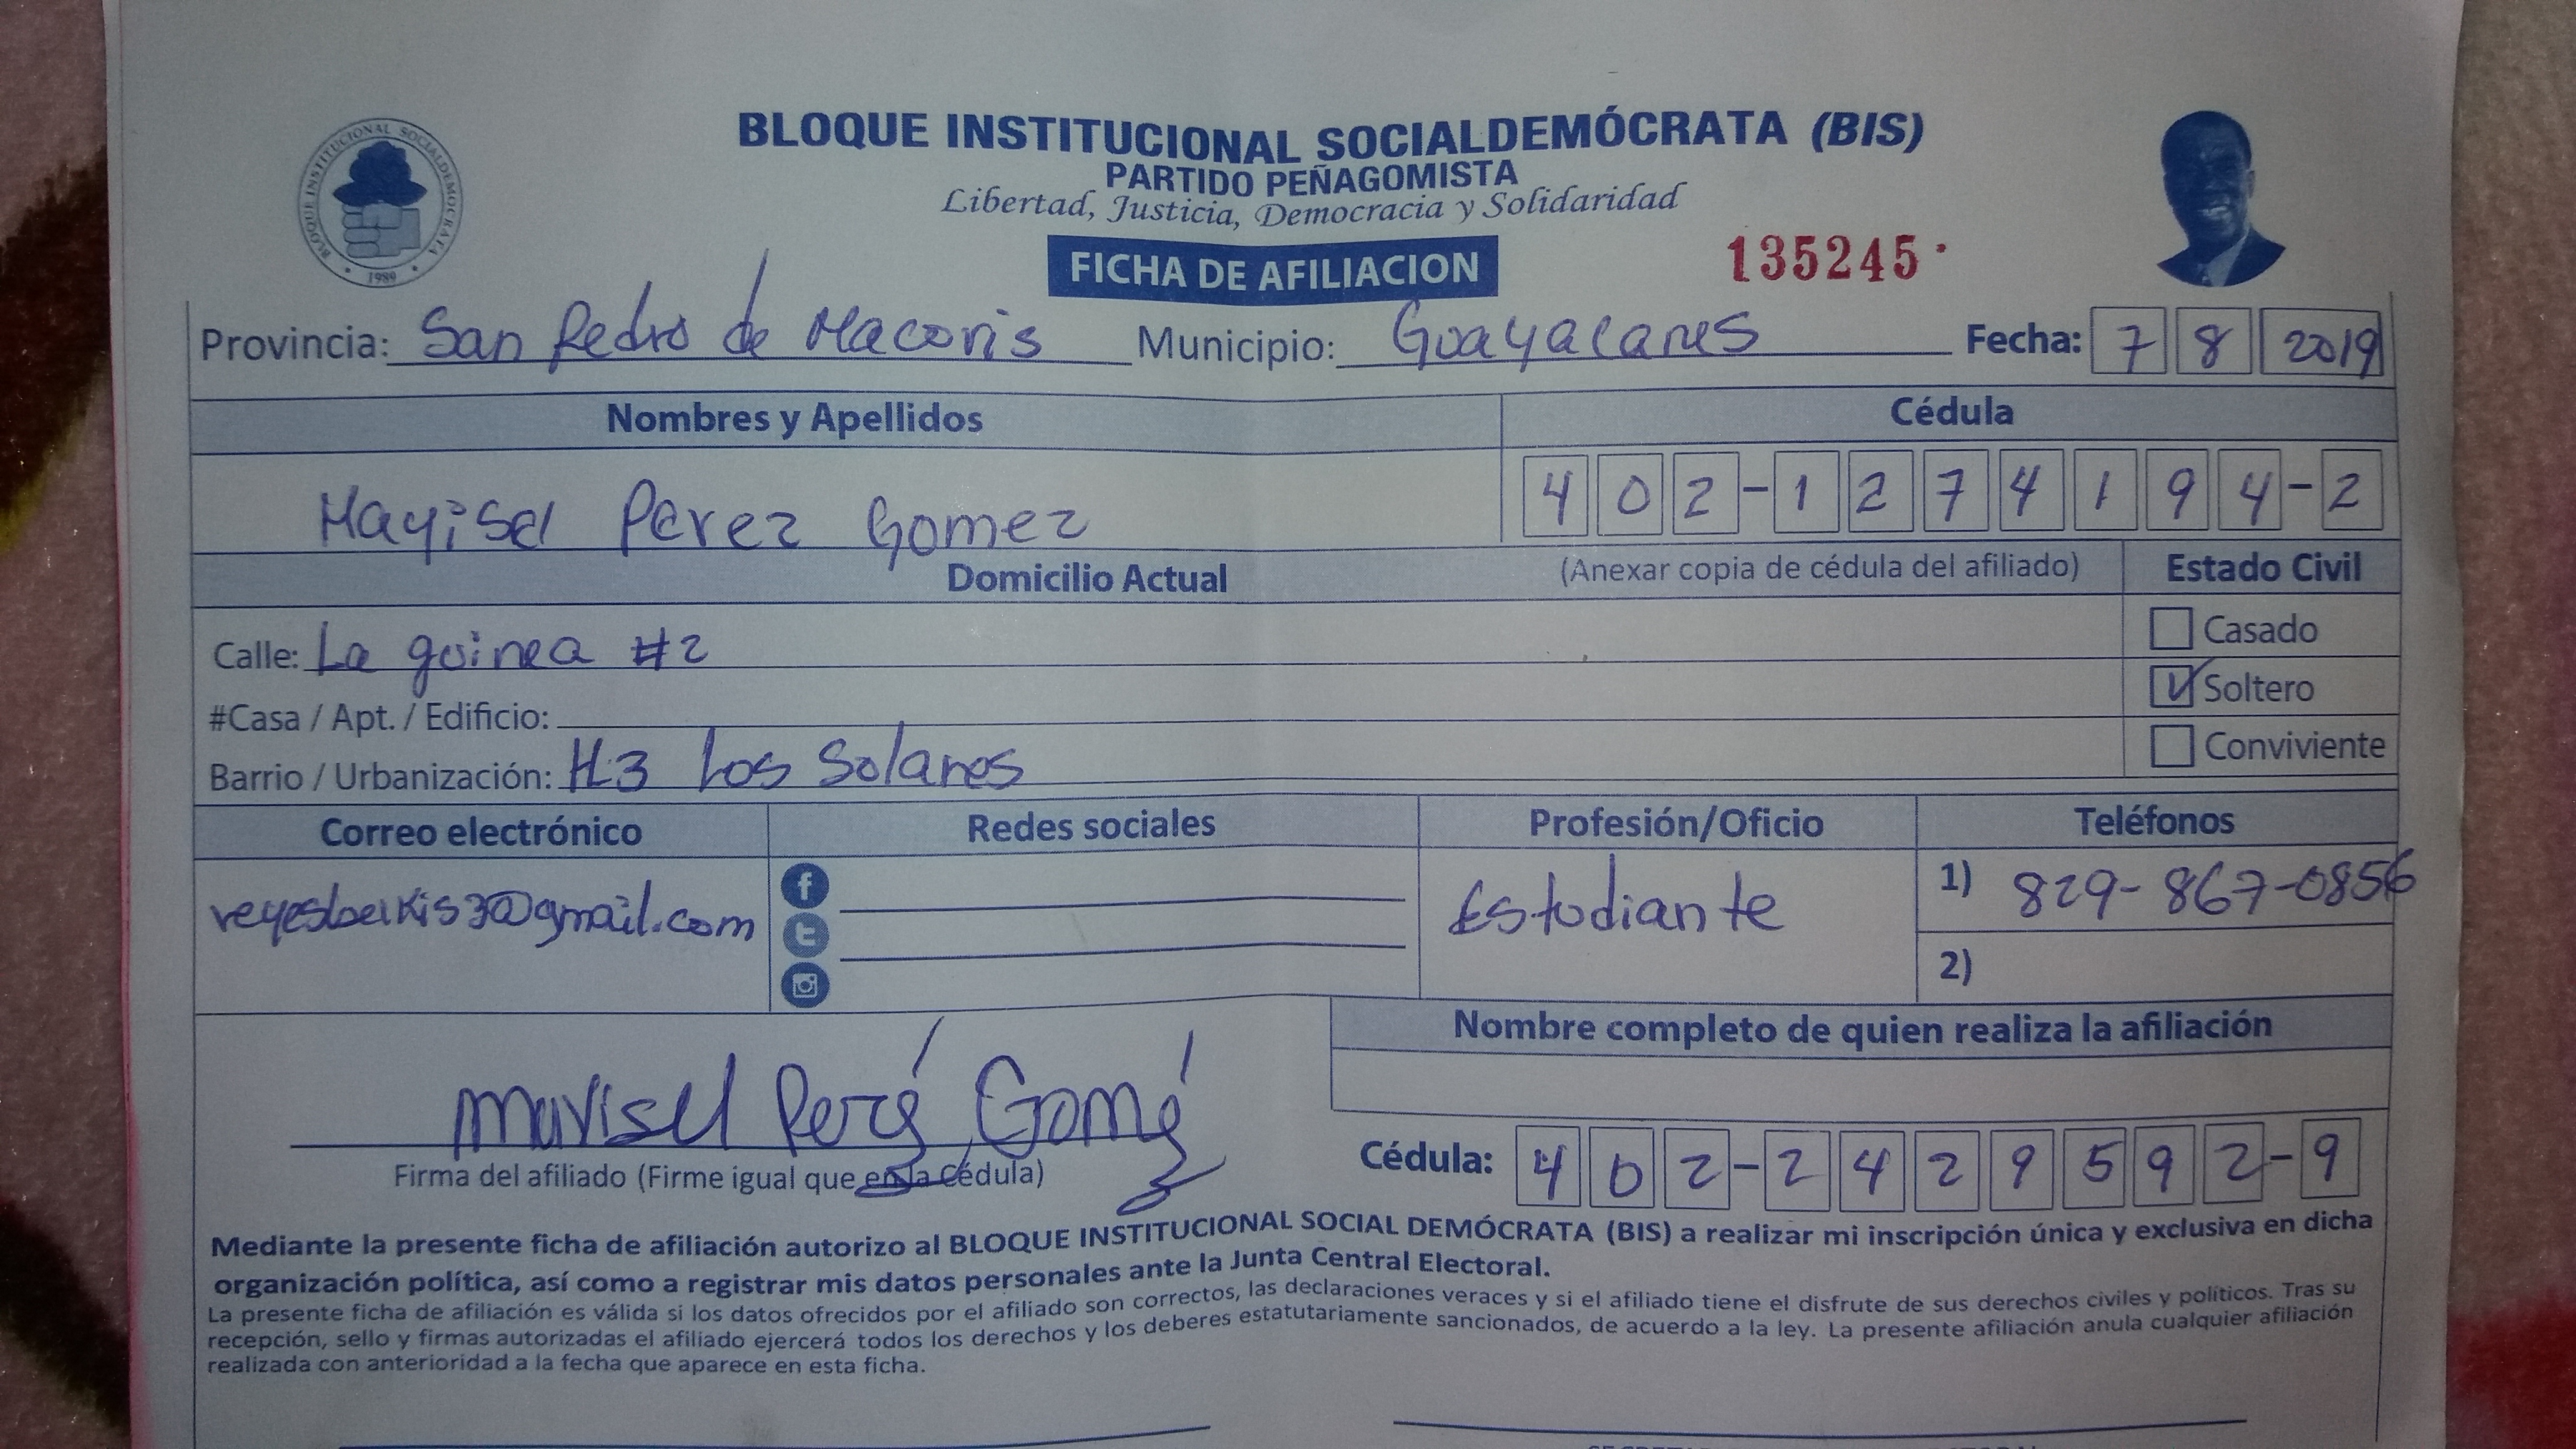 BLOQUE INSTITUCIONAL SOCIALDEMÓCRATA (BIS)
PARTIDO PEÑAGOMISTA
Libertad, Justicia, Democracia y Solidaridad
BLOQUE INSTITUCIONAL SOCIALDEMOCRATA
1989
FICHA DE AFILIACION
135245
Provincia: San Pedro de Macoris Municipio: Guayacanes Fecha: 7 8 2019
Nombres y Apellidos Cédula
Mayisel Perez Gomez 402-1274194-2
Domicilio Actual (Anexar copia de cédula del afiliado) Estado Civil
Calle: La guinea #2 Casado
#Casa / Apt. / Edificio: Soltero
Barrio / Urbanización: H3 Los Solares Conviviente
Correo electrónico Redes sociales Profesión/Oficio Teléfonos
reyesbeikis3@gmail.com Estudiante 1) 829-867-0856
2)
Nombre completo de quien realiza la afiliación
Firma del afiliado (Firme igual que en la Cédula) Cédula: 402-2429592-9
Mediante la presente ficha de afiliación autorizo al BLOQUE INSTITUCIONAL SOCIAL DEMÓCRATA (BIS) a realizar mi inscripción única y exclusiva en dicha
organización política, así como a registrar mis datos personales ante la Junta Central Electoral.
La presente ficha de afiliación es válida si los datos ofrecidos por el afiliado son correctos, las declaraciones veraces y si el afiliado tiene el disfrute de sus derechos civiles y políticos. Tras su
recepción, sello y firmas autorizadas el afiliado ejercerá todos los derechos y los deberes estatutariamente sancionados, de acuerdo a la ley. La presente afiliación anula cualquier afiliación
realizada con anterioridad a la fecha que aparece en esta ficha.